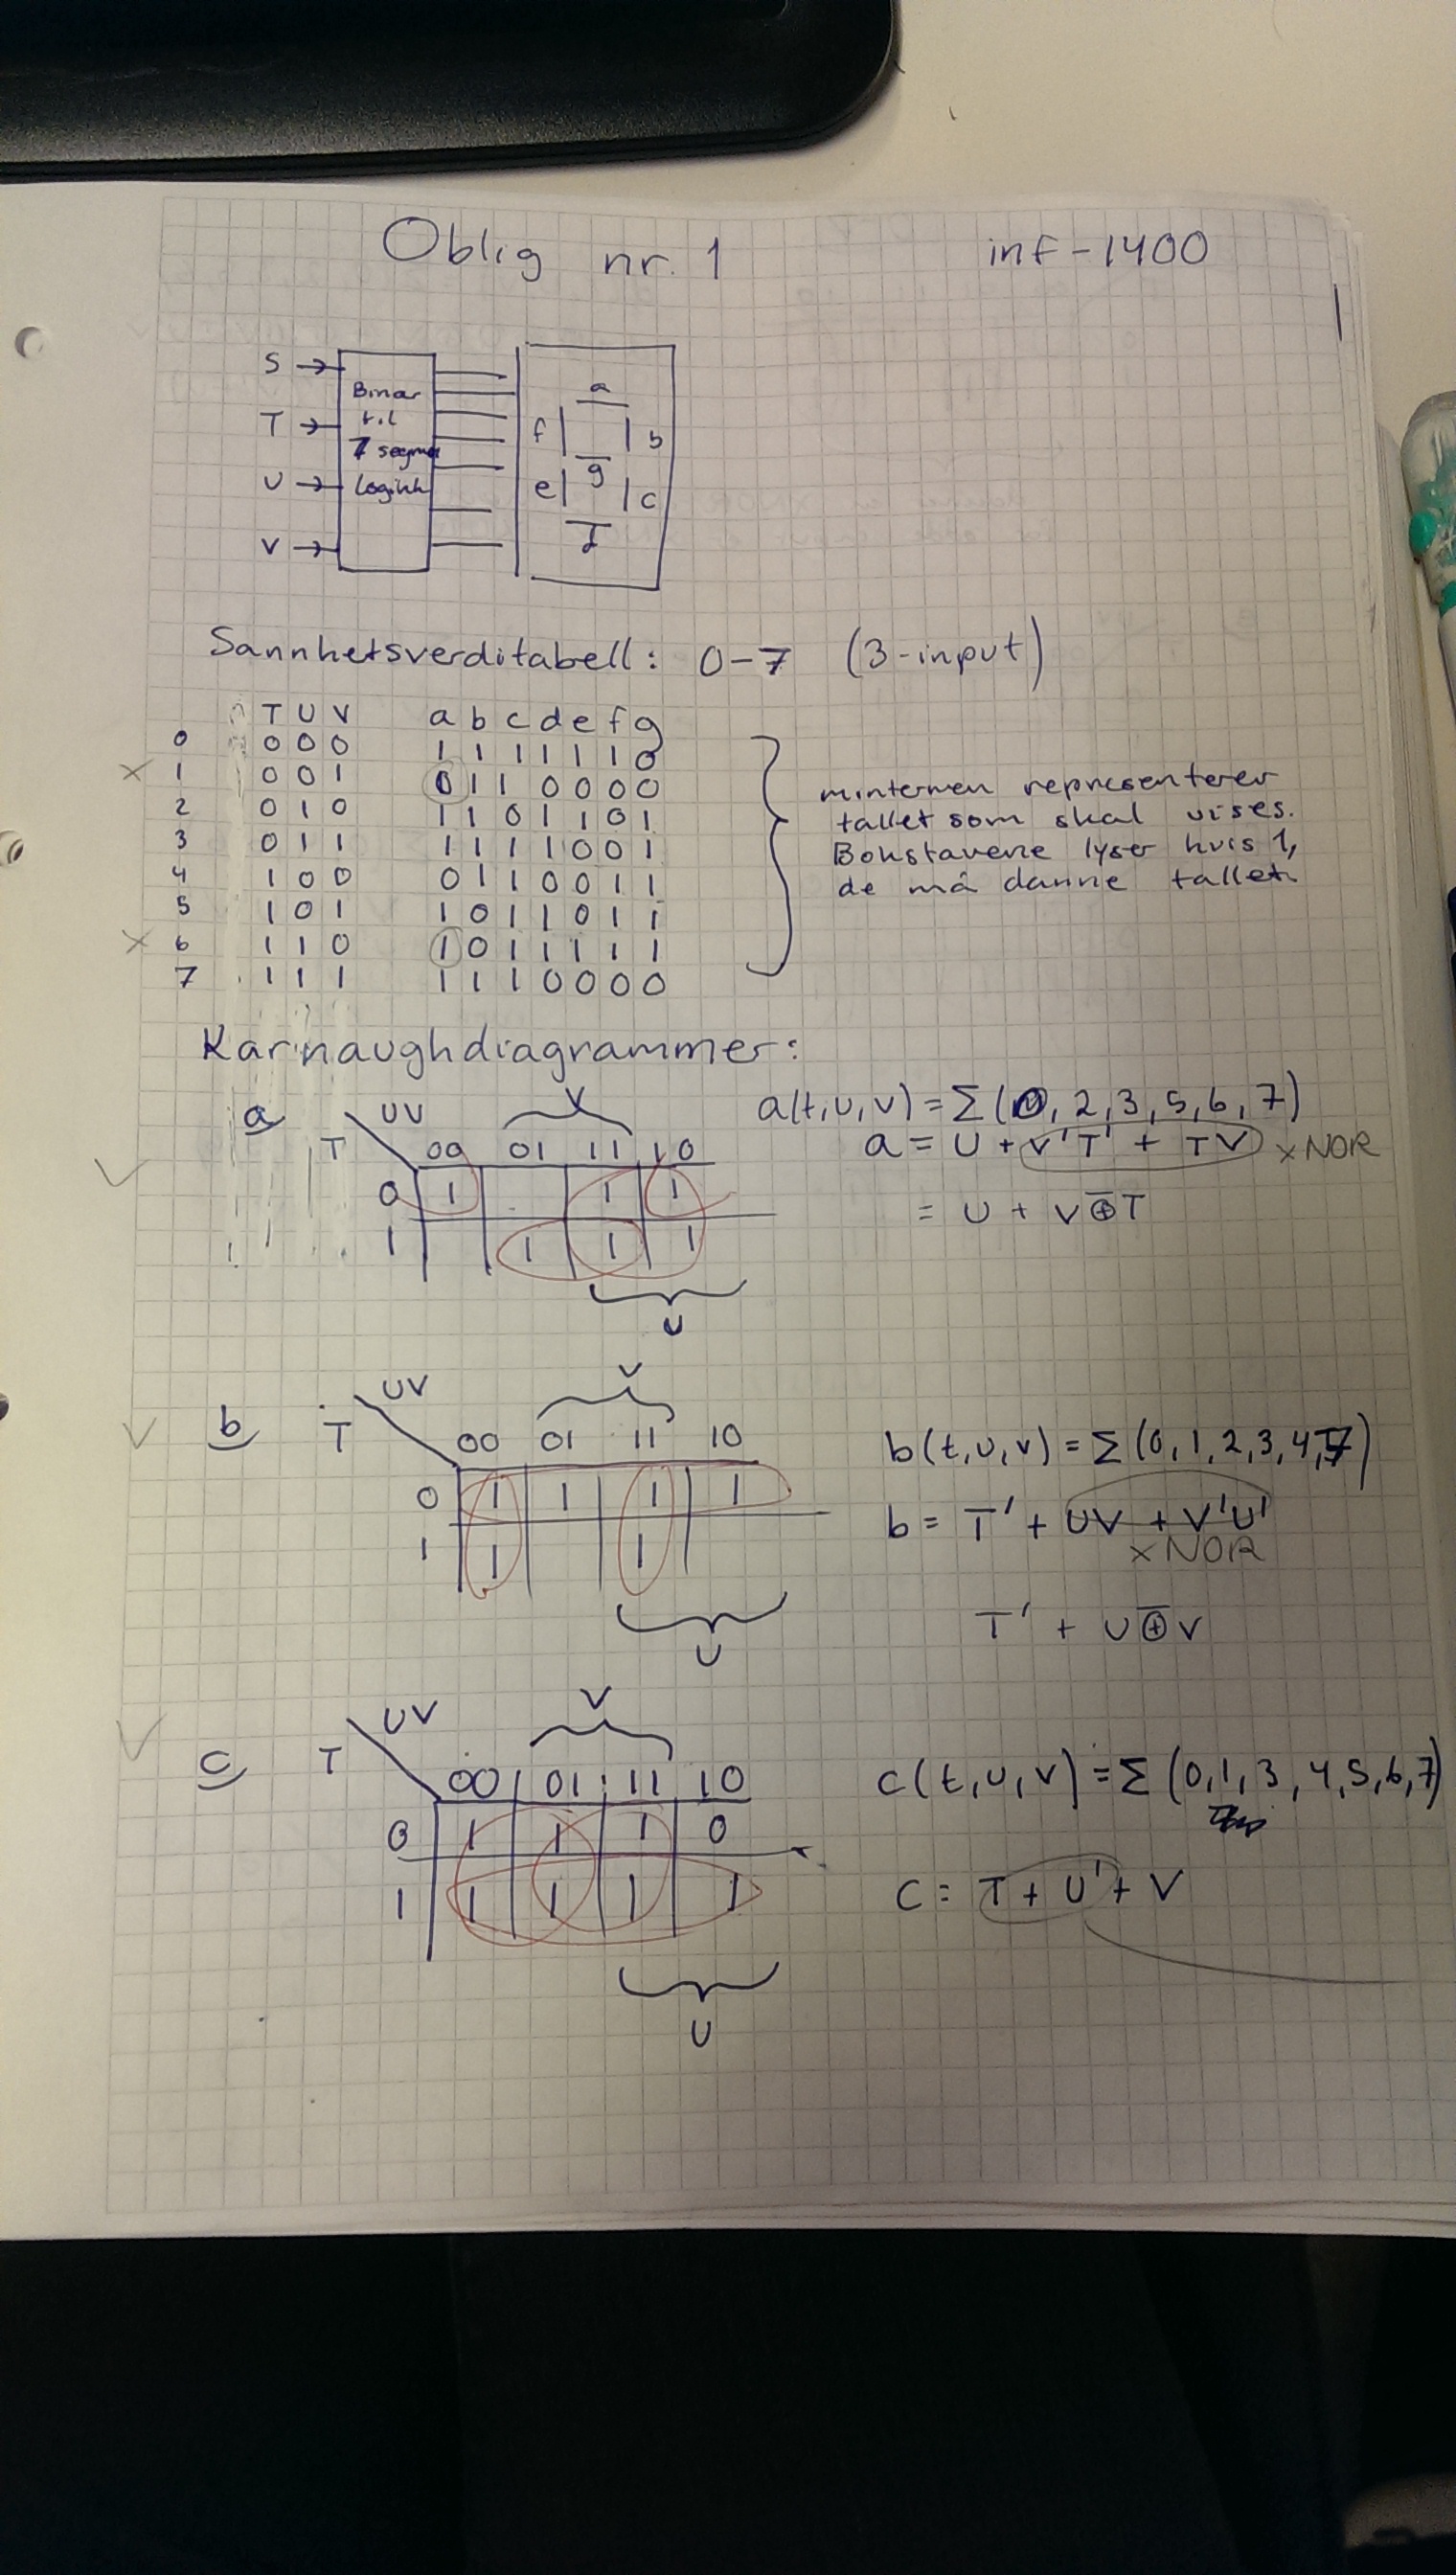 Oblig nr. 1 inf-1400
1
S → Binær
T → til
7 segment
U → Logikk
V →
a
f b
g
e c
d
Sannhetsverditabell: 0-7 (3-input)
T U V a b c d e f g
0 0 0 0 1 1 1 1 1 1 0
x 1 0 0 1 0 1 1 0 0 0 0
2 0 1 0 1 1 0 1 1 0 1
3 0 1 1 1 1 1 1 0 0 1
4 1 0 0 0 1 1 0 0 1 1
5 1 0 1 1 0 1 1 0 1 1
x 6 1 1 0 1 0 1 1 1 1 1
7 1 1 1 1 1 1 0 0 0 0
mintermen representerer
tallet som skal vises.
Bokstavene lyser hvis 1,
de må danne tallet.
Karnaughdiagrammer:
a UV V
T 00 01 11 10
0 1 1 1
1 1 1 1
U
a(t,u,v) = Σ(0, 2, 3, 5, 6, 7)
a = U + V'T' + TV xNOR
= U + V ⊕̅ T
b UV V
T 00 01 11 10
0 1 1 1 1
1 1 1
U
b(t,u,v) = Σ(0, 1, 2, 3, 4, 7)
b = T' + UV + V'U'
xNOR
T' + U ⊕̅ V
c UV V
T 00 01 11 10
0 1 1 1 0
1 1 1 1 1
U
c(t,u,v) = Σ(0, 1, 3, 4, 5, 6, 7)
c = T + U' + V